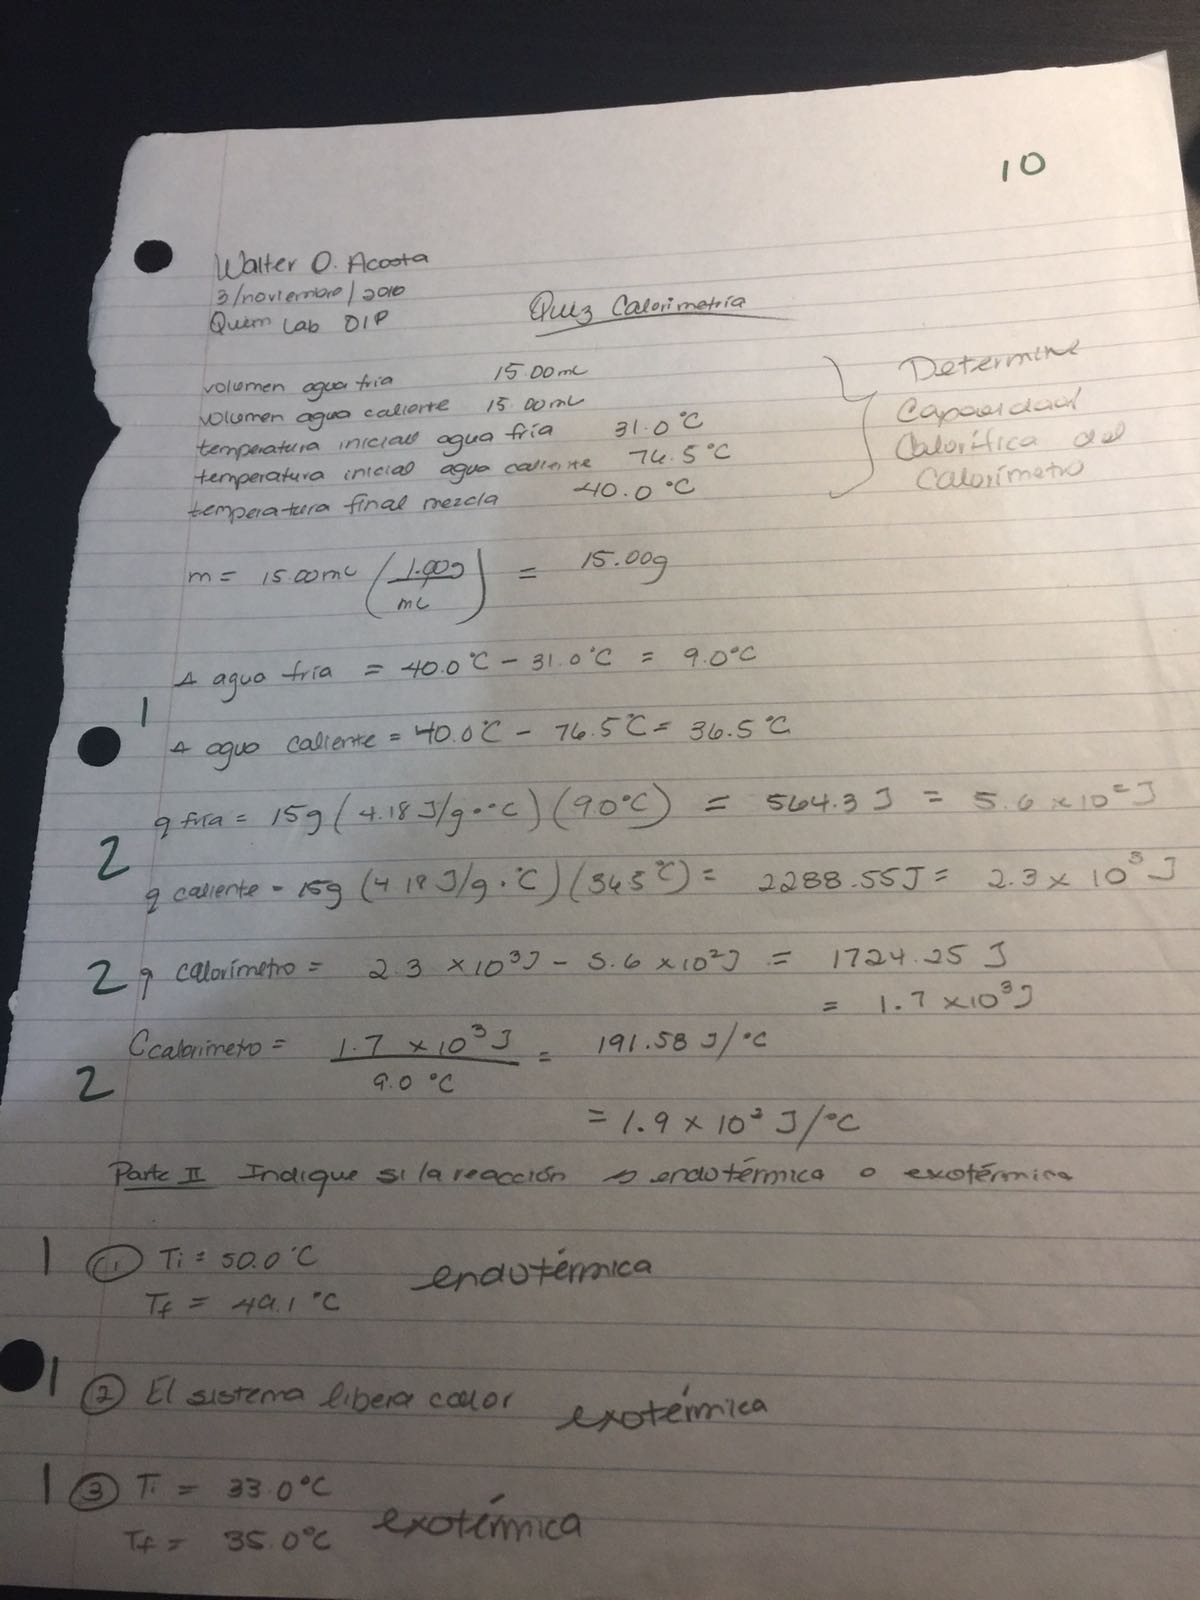 10
Walter O. Acosta
3/noviembre/2016
Quím Lab 01P
Quiz Calorimetría
volumen agua fría 15.00mL
volumen agua caliente 15.00mL
temperatura inicial agua fría 31.0°C
temperatura inicial agua caliente 76.5°C
temperatura final mezcla 40.0°C
Determine
Capacidad
Calorífica del
Calorímetro
m = 15.00mL (1.00g/mL) = 15.00g
Δ agua fría = 40.0°C - 31.0°C = 9.0°C
1
Δ agua caliente = 40.0°C - 76.5°C = 36.5°C
q fría = 15g (4.18 J/g·°C) (9.0°C) = 564.3 J = 5.6 x 10² J
2
q caliente = 15g (4.18 J/g·°C) (36.5°C) = 2288.55J = 2.3 x 10³ J
2 q calorímetro = 2.3 x10³J - 5.6 x10²J = 1724.25 J
= 1.7 x10³J
Ccalorímetro = 1.7 x10³J / 9.0 °C = 191.58 J/°C
2
= 1.9 x 10² J/°C
Parte II Indique si la reacción es endotérmica o exotérmica
1 ① Ti = 50.0°C endotérmica
Tf = 49.1 °C
1 ② El sistema libera calor exotérmica
1 ③ Ti = 33.0°C exotérmica
Tf = 35.0°C